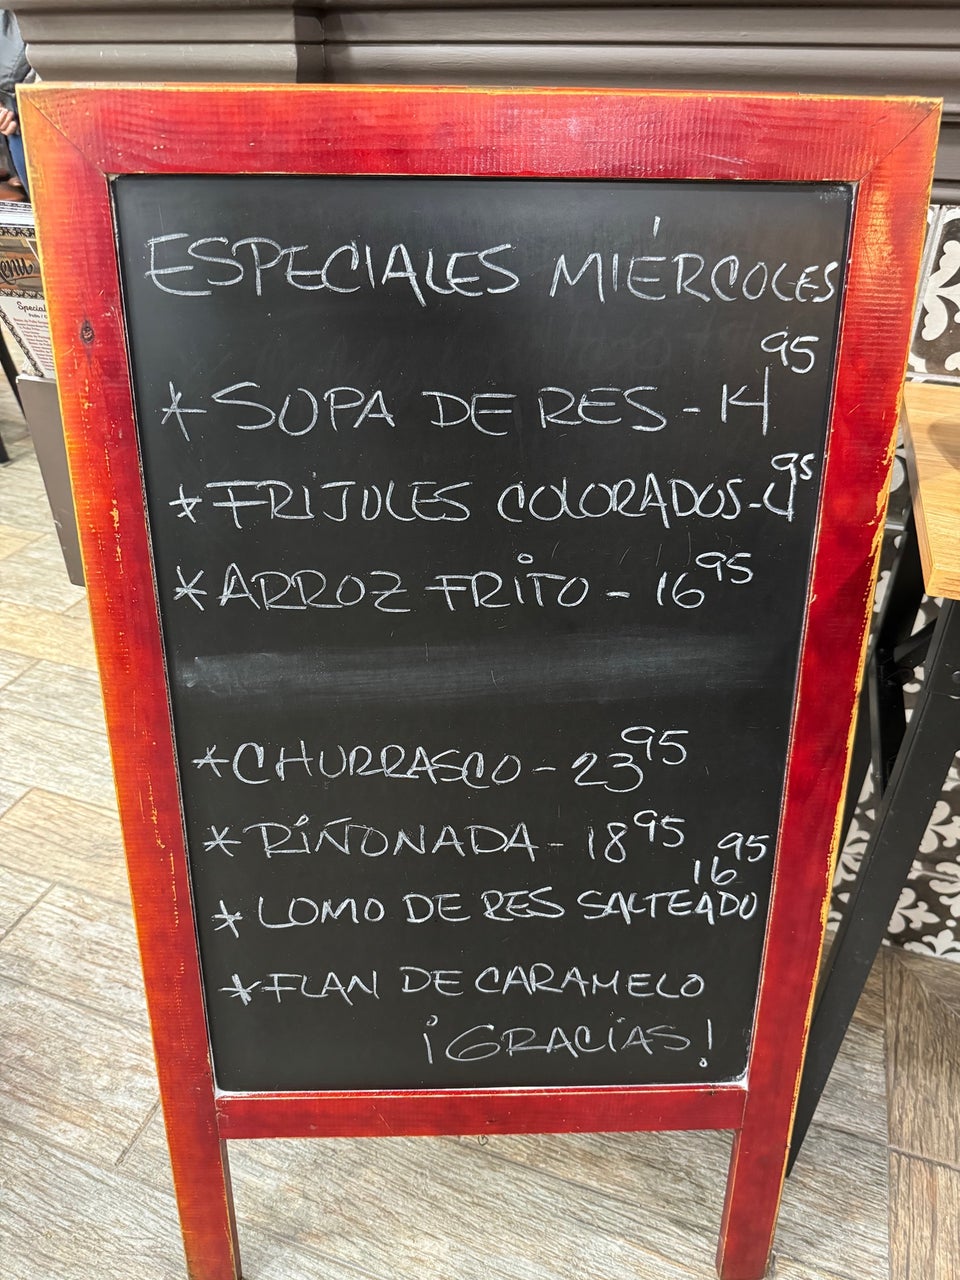 ESPECIALES MIÉRCOLES
* SOPA DE RES - 14 95
* FRIJOLES COLORADOS - 4 95
* ARROZ FRITO - 16 95
* CHURRASCO - 23 95
* RIÑONADA - 18 95
* LOMO DE RES SALTEADO 16 95
* FLAN DE CARAMELO
¡GRACIAS!
menu
Special